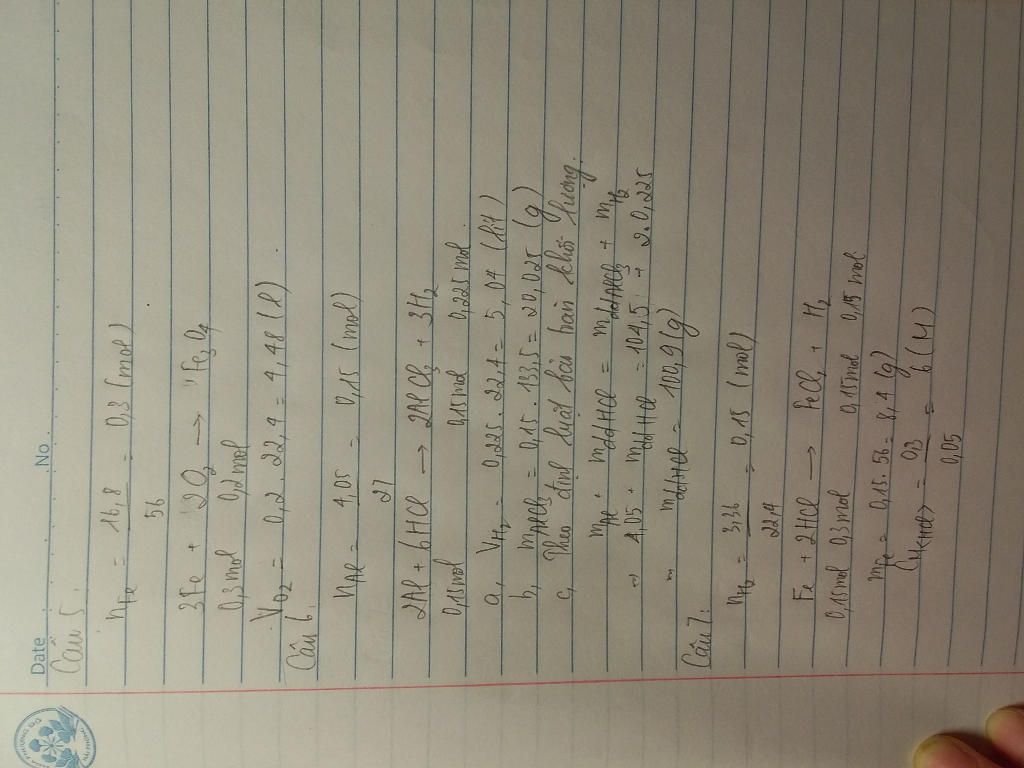 Date No.
Câu 5:
nFe = 16,8 / 56 = 0,3 (mol)
3Fe + 2O2 → Fe3O4
0,3mol 0,2mol
VO2 = 0,2 . 22,4 = 4,48 (l)
Câu 6:
nAl = 4,05 / 27 = 0,15 (mol)
2Al + 6HCl → 2AlCl3 + 3H2
0,15mol 0,15mol 0,225mol
a, VH2 = 0,225 . 22,4 = 5,04 (lít)
b, mAlCl3 = 0,15 . 133,5 = 20,025 (g)
c, Theo định luật bảo toàn khối lượng.
mAl + mddHCl = mddAlCl3 + mH2
→ 4,05 + mddHCl = 104,5 + 2.0,225
→ mddHCl = 100,9 (g)
Câu 7:
nH2 = 3,36 / 22,4 = 0,15 (mol)
Fe + 2HCl → FeCl2 + H2
0,15mol 0,3mol 0,15mol 0,15mol
mFe = 0,15.56 = 8,4 (g)
CM(HCl) = 0,3 / 0,05 = 6 (M)